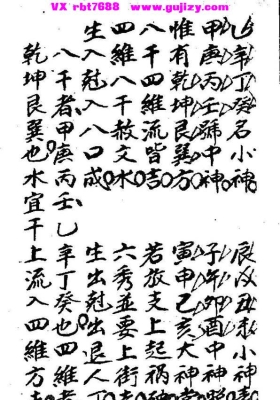 VX rbt7688 www.gujizy.com
辛丁癸名小神 辰戌丑未小神
甲庚丙壬號中神 子午卯酉中神
惟有乾坤艮巽方 寅申己亥大神
八千四維流皆吉 若放支上起禍
四維八千赦文水 六秀並要上街
生入尅入八口成 生出尅出退人
八千者甲庚丙壬乙 辛丁癸也四維者
乾坤艮巽也水宜干上流入四維方